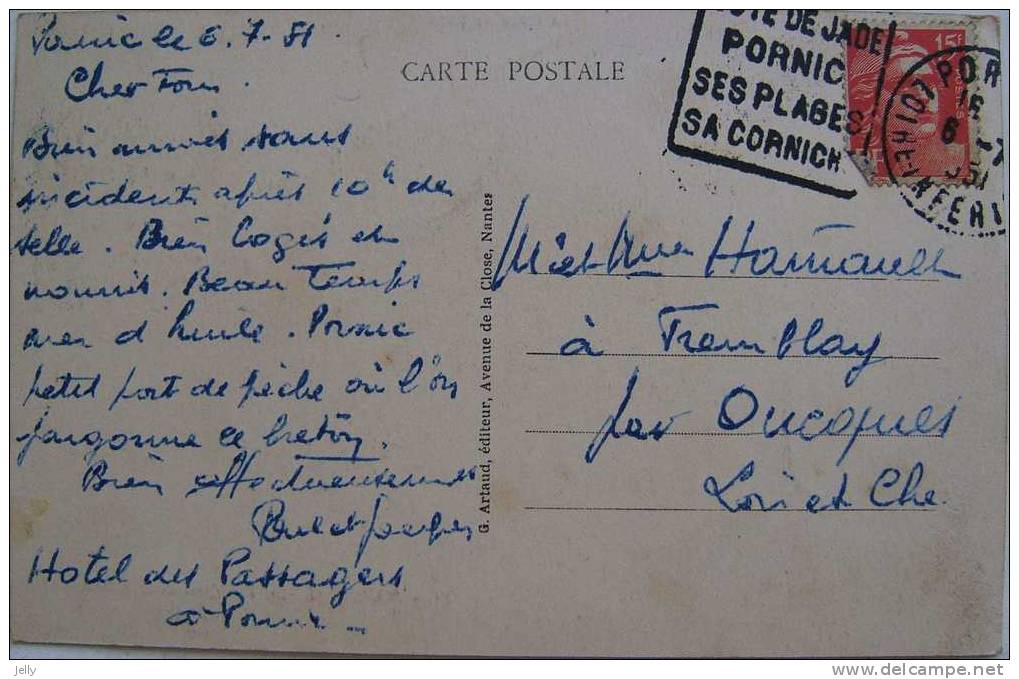 Pornic le 6.7-51
Cher Tous
CARTE POSTALE
Bien arrivés sans
incidents après 10h de
selle. Bien logés et
nourris. Beau Temps
mer d'huile. Pornic
petit port de pêche où l'on
jargonne le breton.
Bien affectueusement
Paul et Jacques
Hotel des Passagers
à Pornic
G. Artaud, éditeur, Avenue de la Close, Nantes
COTE DE JADE
PORNIC
SES PLAGES
SA CORNICH
15F
POSTES
POR
16
6 -7
51
LOIRE-INFERI
Mr et Mme
à Tremblay
par Oucques
Loir et Cher
jelly
www.delcampe.net